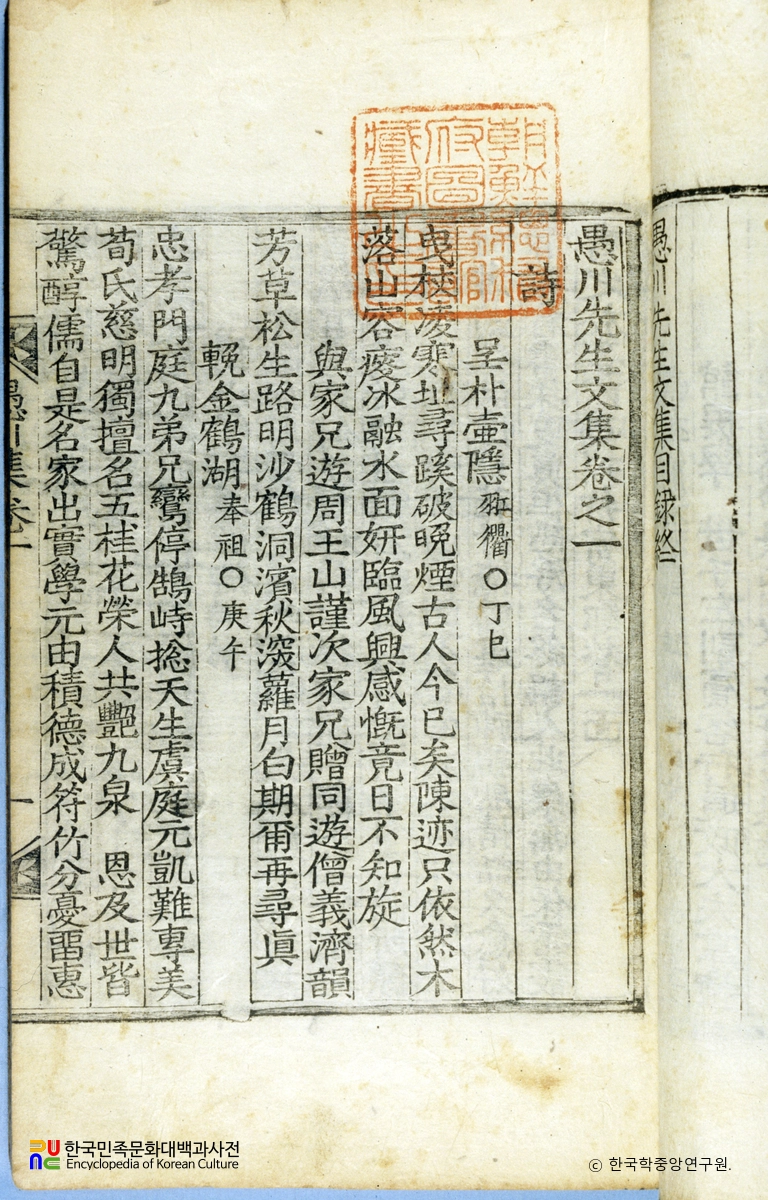 愚川先生文集目録終
朝鮮總督府圖書館藏書之印
愚川先生文集卷之一
詩
呈朴壺隱 衢〇丁巳
曳杖凌寒址尋蹊破晩煙古人今已矣陳迹只依然木
落山容瘦冰融水面姸臨風興感慨竟日不知旋
與家兄遊周王山謹次家兄贈同遊僧義濟韻
芳草松生路明沙鶴洞濱秋深蘿月白期爾再尋眞
輓金鶴湖奉祖〇庚午
忠孝門庭九弟兄鸞停鵠峙捴天生虞庭元凱難專美
荀氏慈明獨擅名五桂花榮人共艷九泉 恩及世皆
驚醇儒自是名家出實學元由積德成符竹分憂畱惠
愚川集卷一 一
한국민족문화대백과사전
Encyclopedia of Korean Culture
ⓒ 한국학중앙연구원.